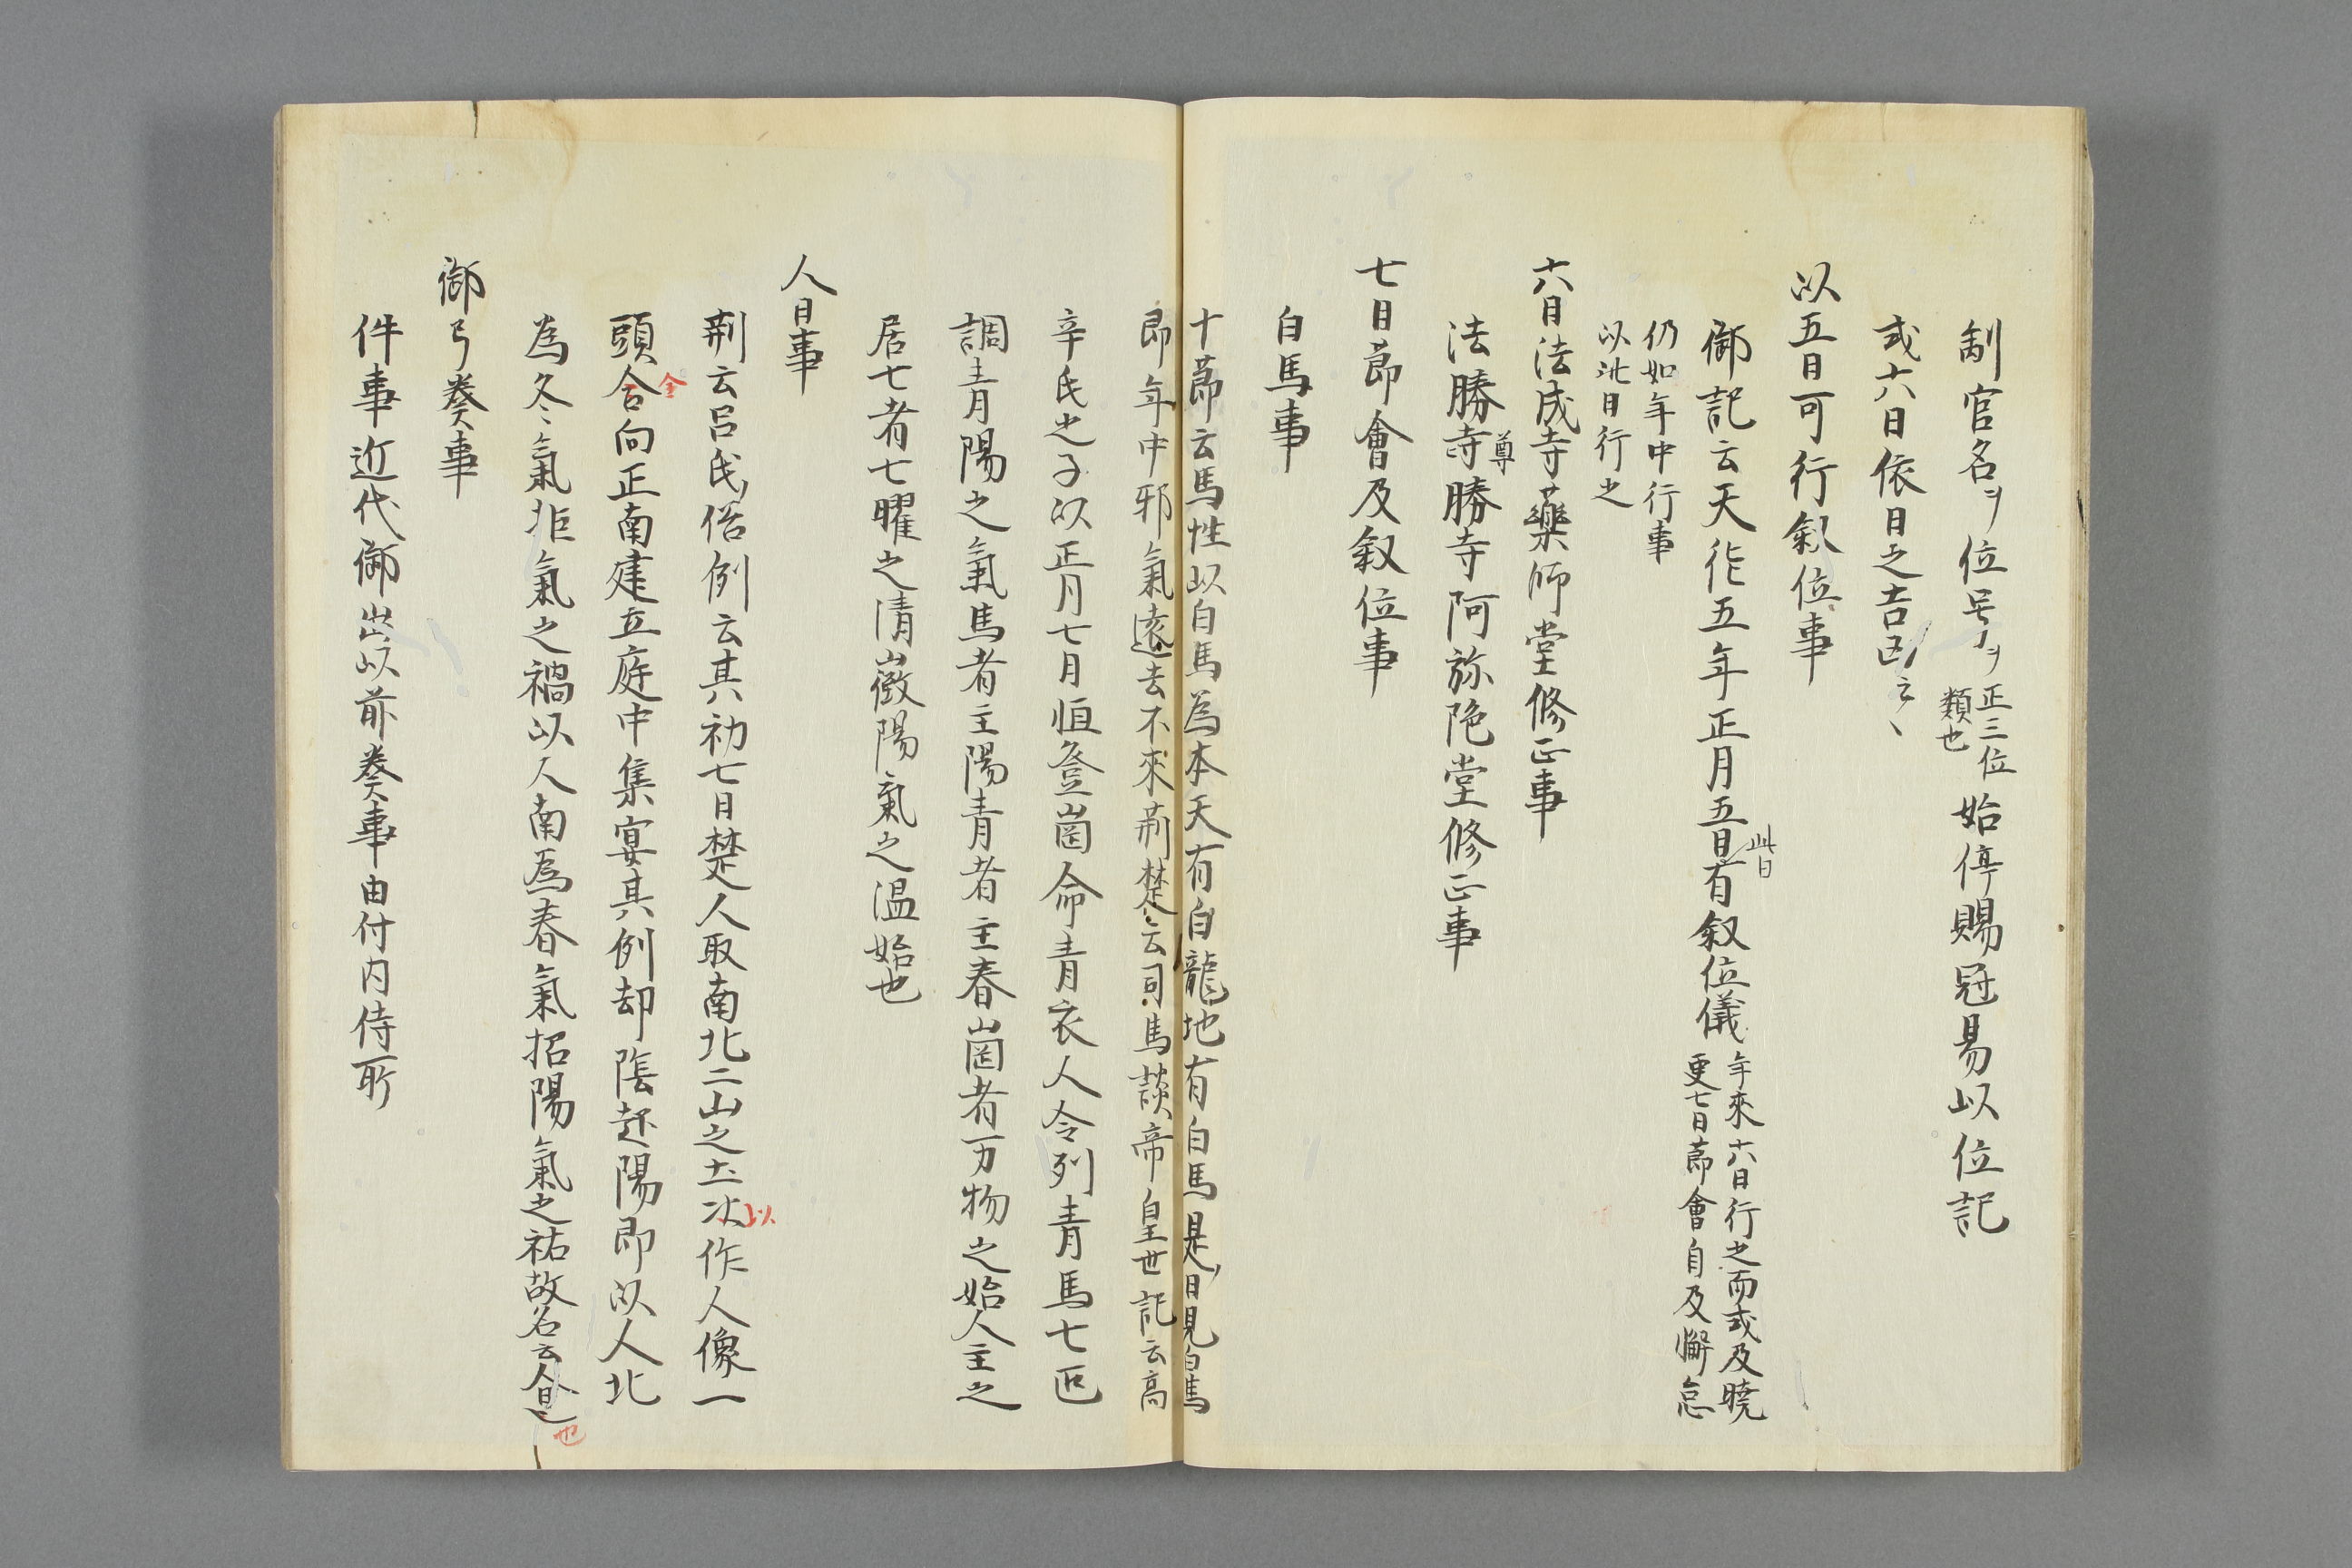 制官名ヲ位号ヲ正三位類也始停賜冠易以位記
或六日依日之吉凶云々
以五日可行叙位事
御記云天作五年正月五日此日有叙位儀年來六日行之而或及曉更七日節會自及懈怠
仍如年中行事
以此日行之
六日法成寺藥師堂修正事
法勝寺尊勝寺阿弥陀堂修正事
七日節會及叙位事
白馬事
十節云馬性以白馬為本天有白龍地有白馬是日見白馬
即年中邪氣遠去不來荊楚云司馬談帝皇世記云高
辛氏之子以正月七日恒登崗命青衣人令列青馬七疋
調青陽之氣馬者主陽青者主春崗者万物之始人主之
居七者七曜之清徴陽氣之温始也
人日事
荊云呂氏俗例云其初七日楚人取南北二山之土次以作人像一
頭合全向正南建立庭中集宴其例却陰起陽即以人北
為冬々氣北氣之禍以人南為春氣招陽氣之祐故名云人日也
御弓奏事
件事近代御出以前奏事由付内侍所